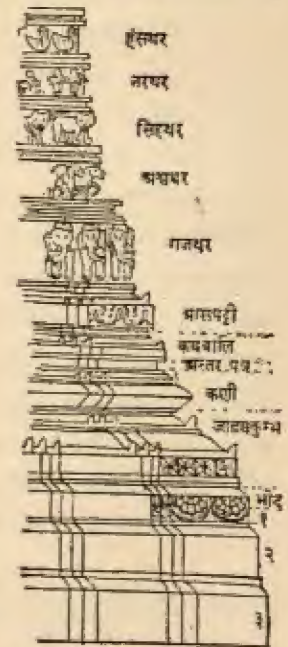 हंसथर
नरथर
सिंहथर
अश्वथर
गजथर
ग्रासपट्टी
अन्तर पत्र
कणी
जाड्यकुम्भ
भीट
१
२
३